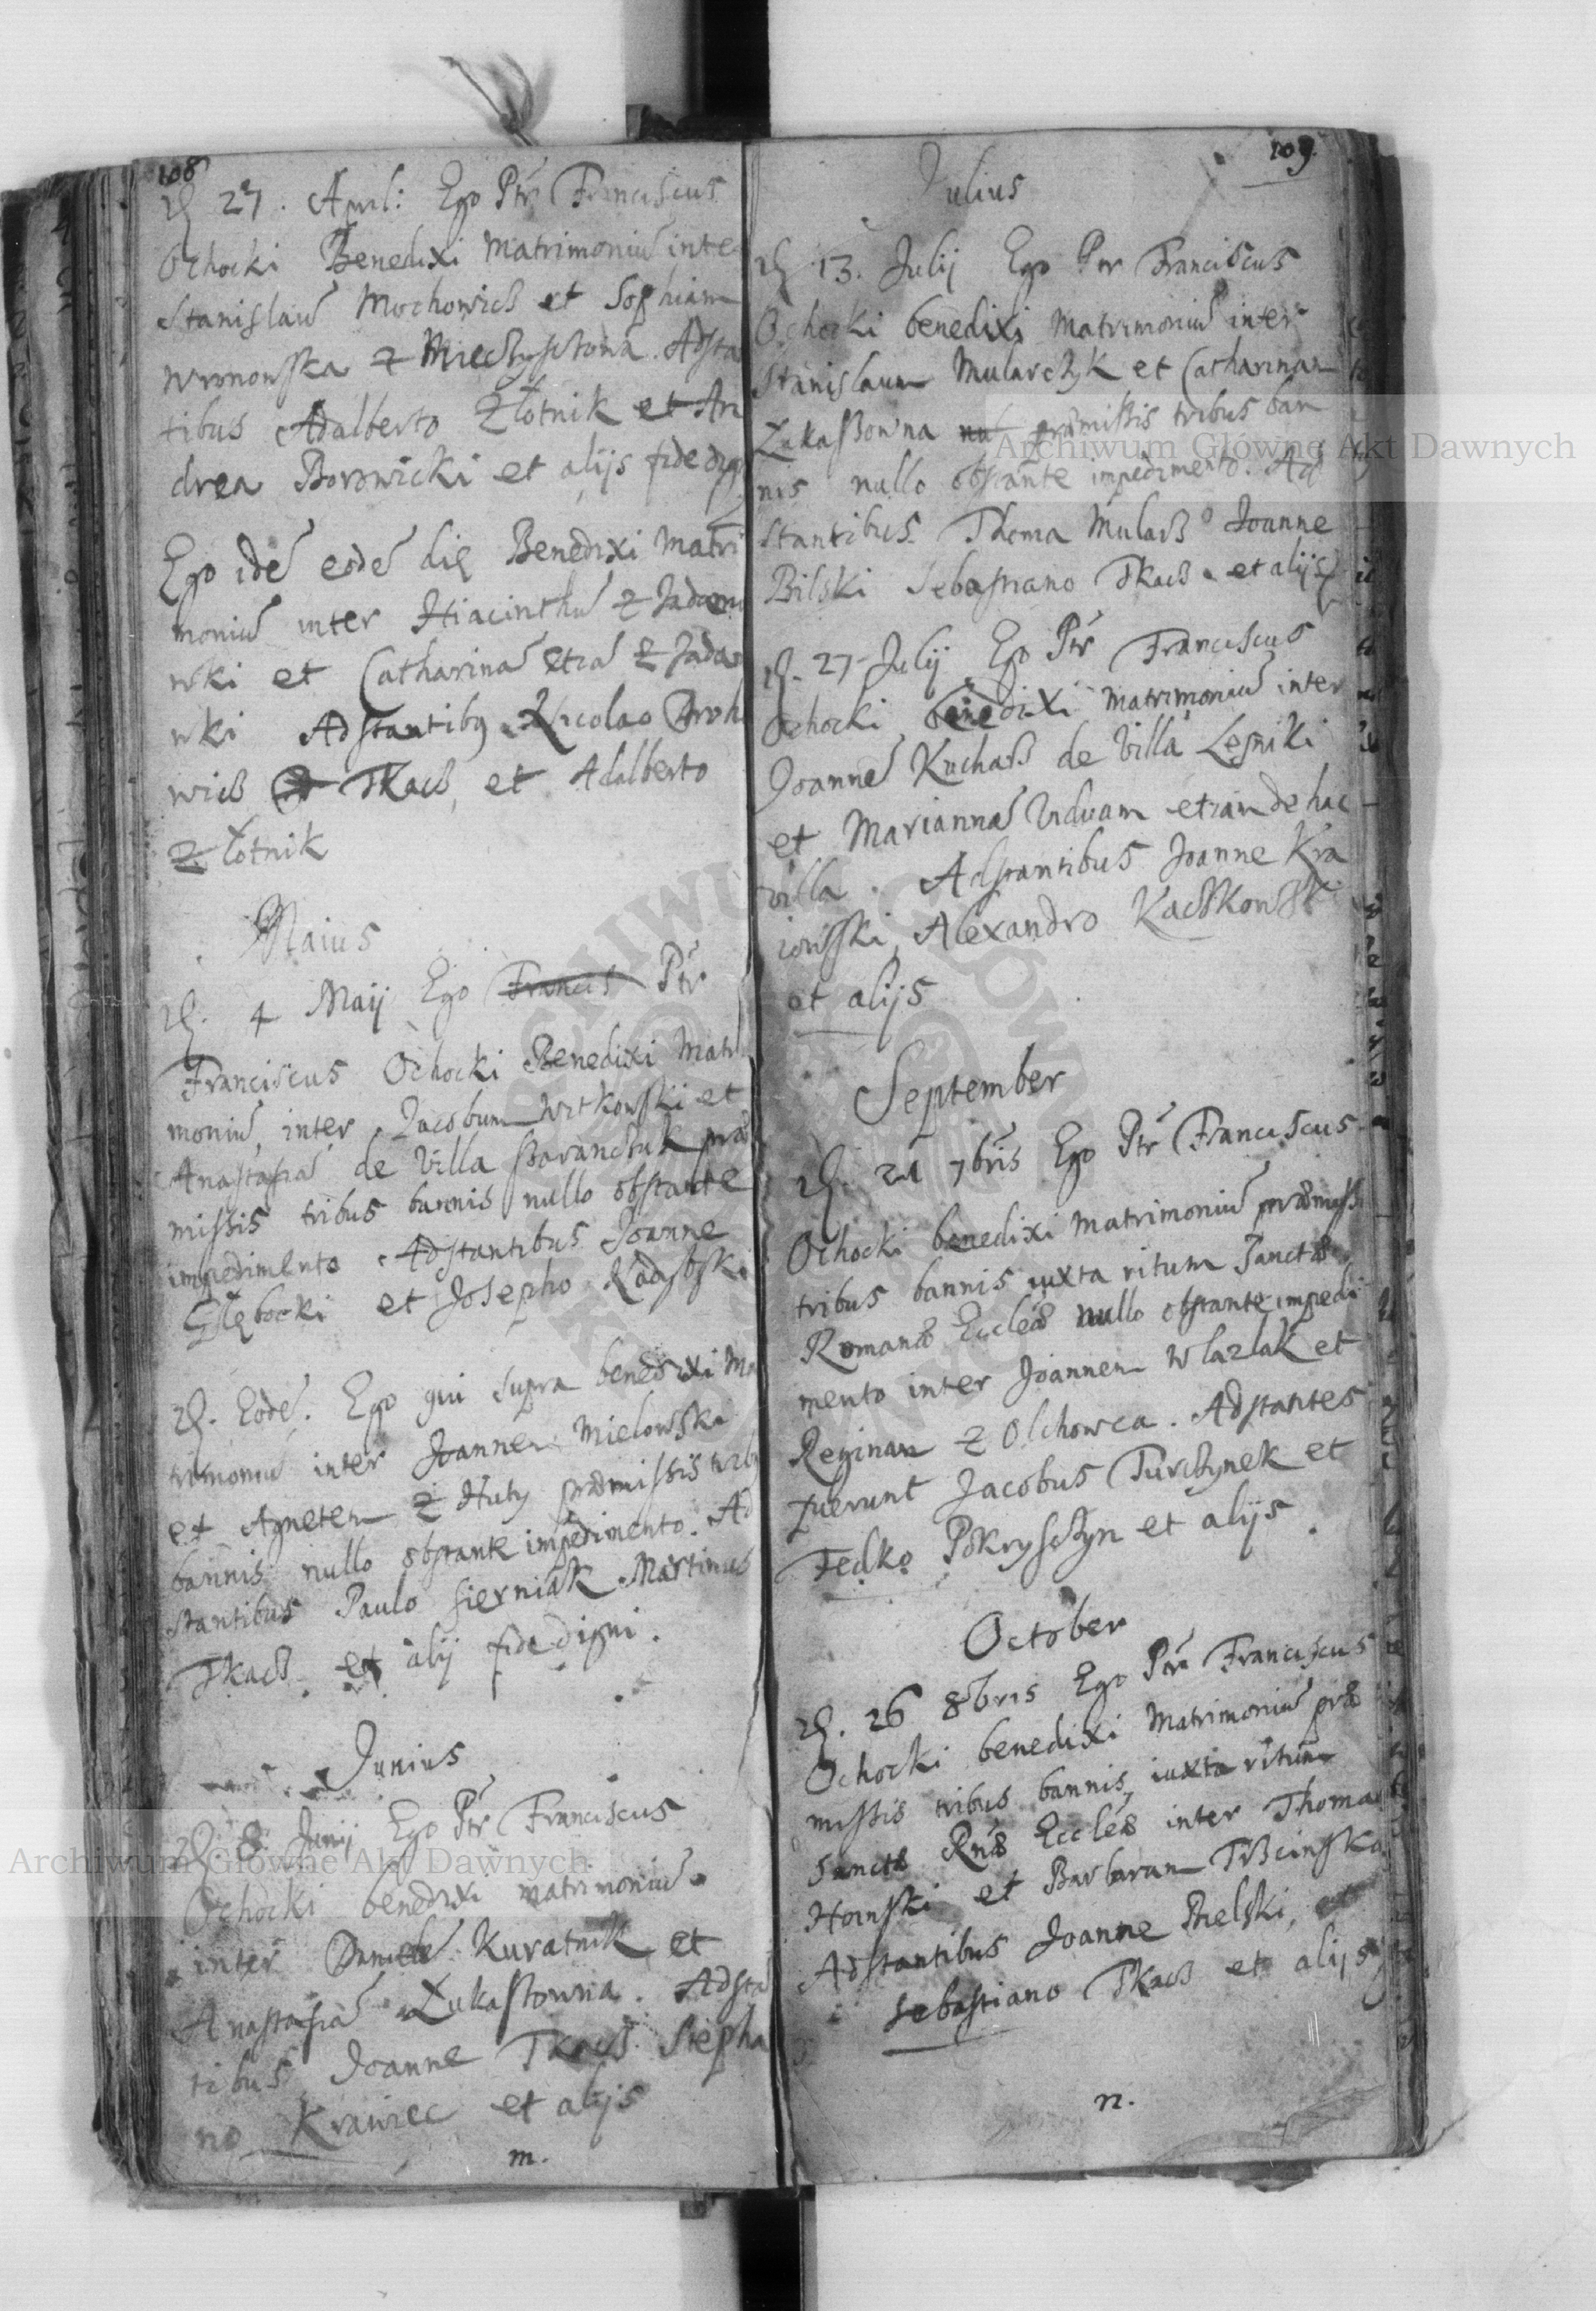 108
D. 27. April: Ego Ptr Franciscus
Ochocki Benedixi Matrimoniū inter
Stanislaū Mochowicz et Sophiam
Wronowska z Mieczyszczowa. Adsta
tibus Adalberto Złotnik et An
drea Borowicki et alijs fide dig
Ego idē eodē die Benedixi Matri
moniū inter Hiacinthū z Jadamo
wki et Catharinā etiā z Jadamo
wki Adstantibq Nicolao
wicz Tkacz, et Adalberto
złotnik
Maius
D. 4 Maij Ego Francis Ptr
Franciscus Ochocki Benedixi Matri
moniū, inter Jacobum Witkowski et
Anastasiā de Villa præ
missis tribus bannis nullo obstante
impedimento. Adstantibus Joanne
Głębocki et Josepho
D. Eodē. Ego qui supra benedixi Ma
trimoniū inter Joannem Mielowska
et Agnetem z Huty præmissis tribq
bannis nullo obstante impedimento. Ad
stantibus Paulo Sierniak Martinus
Tkacz et alij fide digni.
Junius
D. 8 Junij Ego Ptr Franciscus
Ochocki benedixi matrimoniū
inter Kuratnik et
Anastasiā Łukaszowna. Adsta
tibus Joanne Tkacz Stepha
no Krawiec et alijs
m.
109.
Julius
D. 13. Julij Ego Ptr Franciscus
Ochocki benedixi Matrimoniū inter
Stanislaum Mularczyk et Catharinam
Łukaszowna nul præmissis tribus ban
nis nullo obstante impedimento. Ad
stantibus Thoma Mularz Joanne
Bilski Sebastiano Tkacz et alijs
D. 27 Julij Ego Ptr Franciscus
Ochocki benedixi Matrimoniū inter
Joannē Kucharz de Villa Lesniki
et Mariannā Viduam etiam de hac
villa. Adstantibus Joanne Kra
iewski, Alexandro Kaczkowski
et alijs
September
D. 21 7bris Ego Ptr Franciscus
Ochocki benedixi Matrimoniū præmissi
tribus bannis iuxta ritum Sanctæ
Romanæ Eccleæ nullo obstante impedi
mento inter Joannem Wlazlak et
Reginam z Olchowca. Adstantes
fuerunt Jacobus Turczynek et
Fedko Pokrysczyn et alijs.
October
D. 26 8bris Ego Ptr Franciscus
Ochocki benedixi Matrimoniū præ
missis tribus bannis, iuxta ritum
Sanctæ Rnæ Eccleæ inter Thoma
et Barbaram Trzcinska
Adstantibus Joanne Bielski, et
Sebastiano Tkacz et alijs
n.
Archiwum Główne Akt Dawnych
Archiwum Główne Akt Dawnych